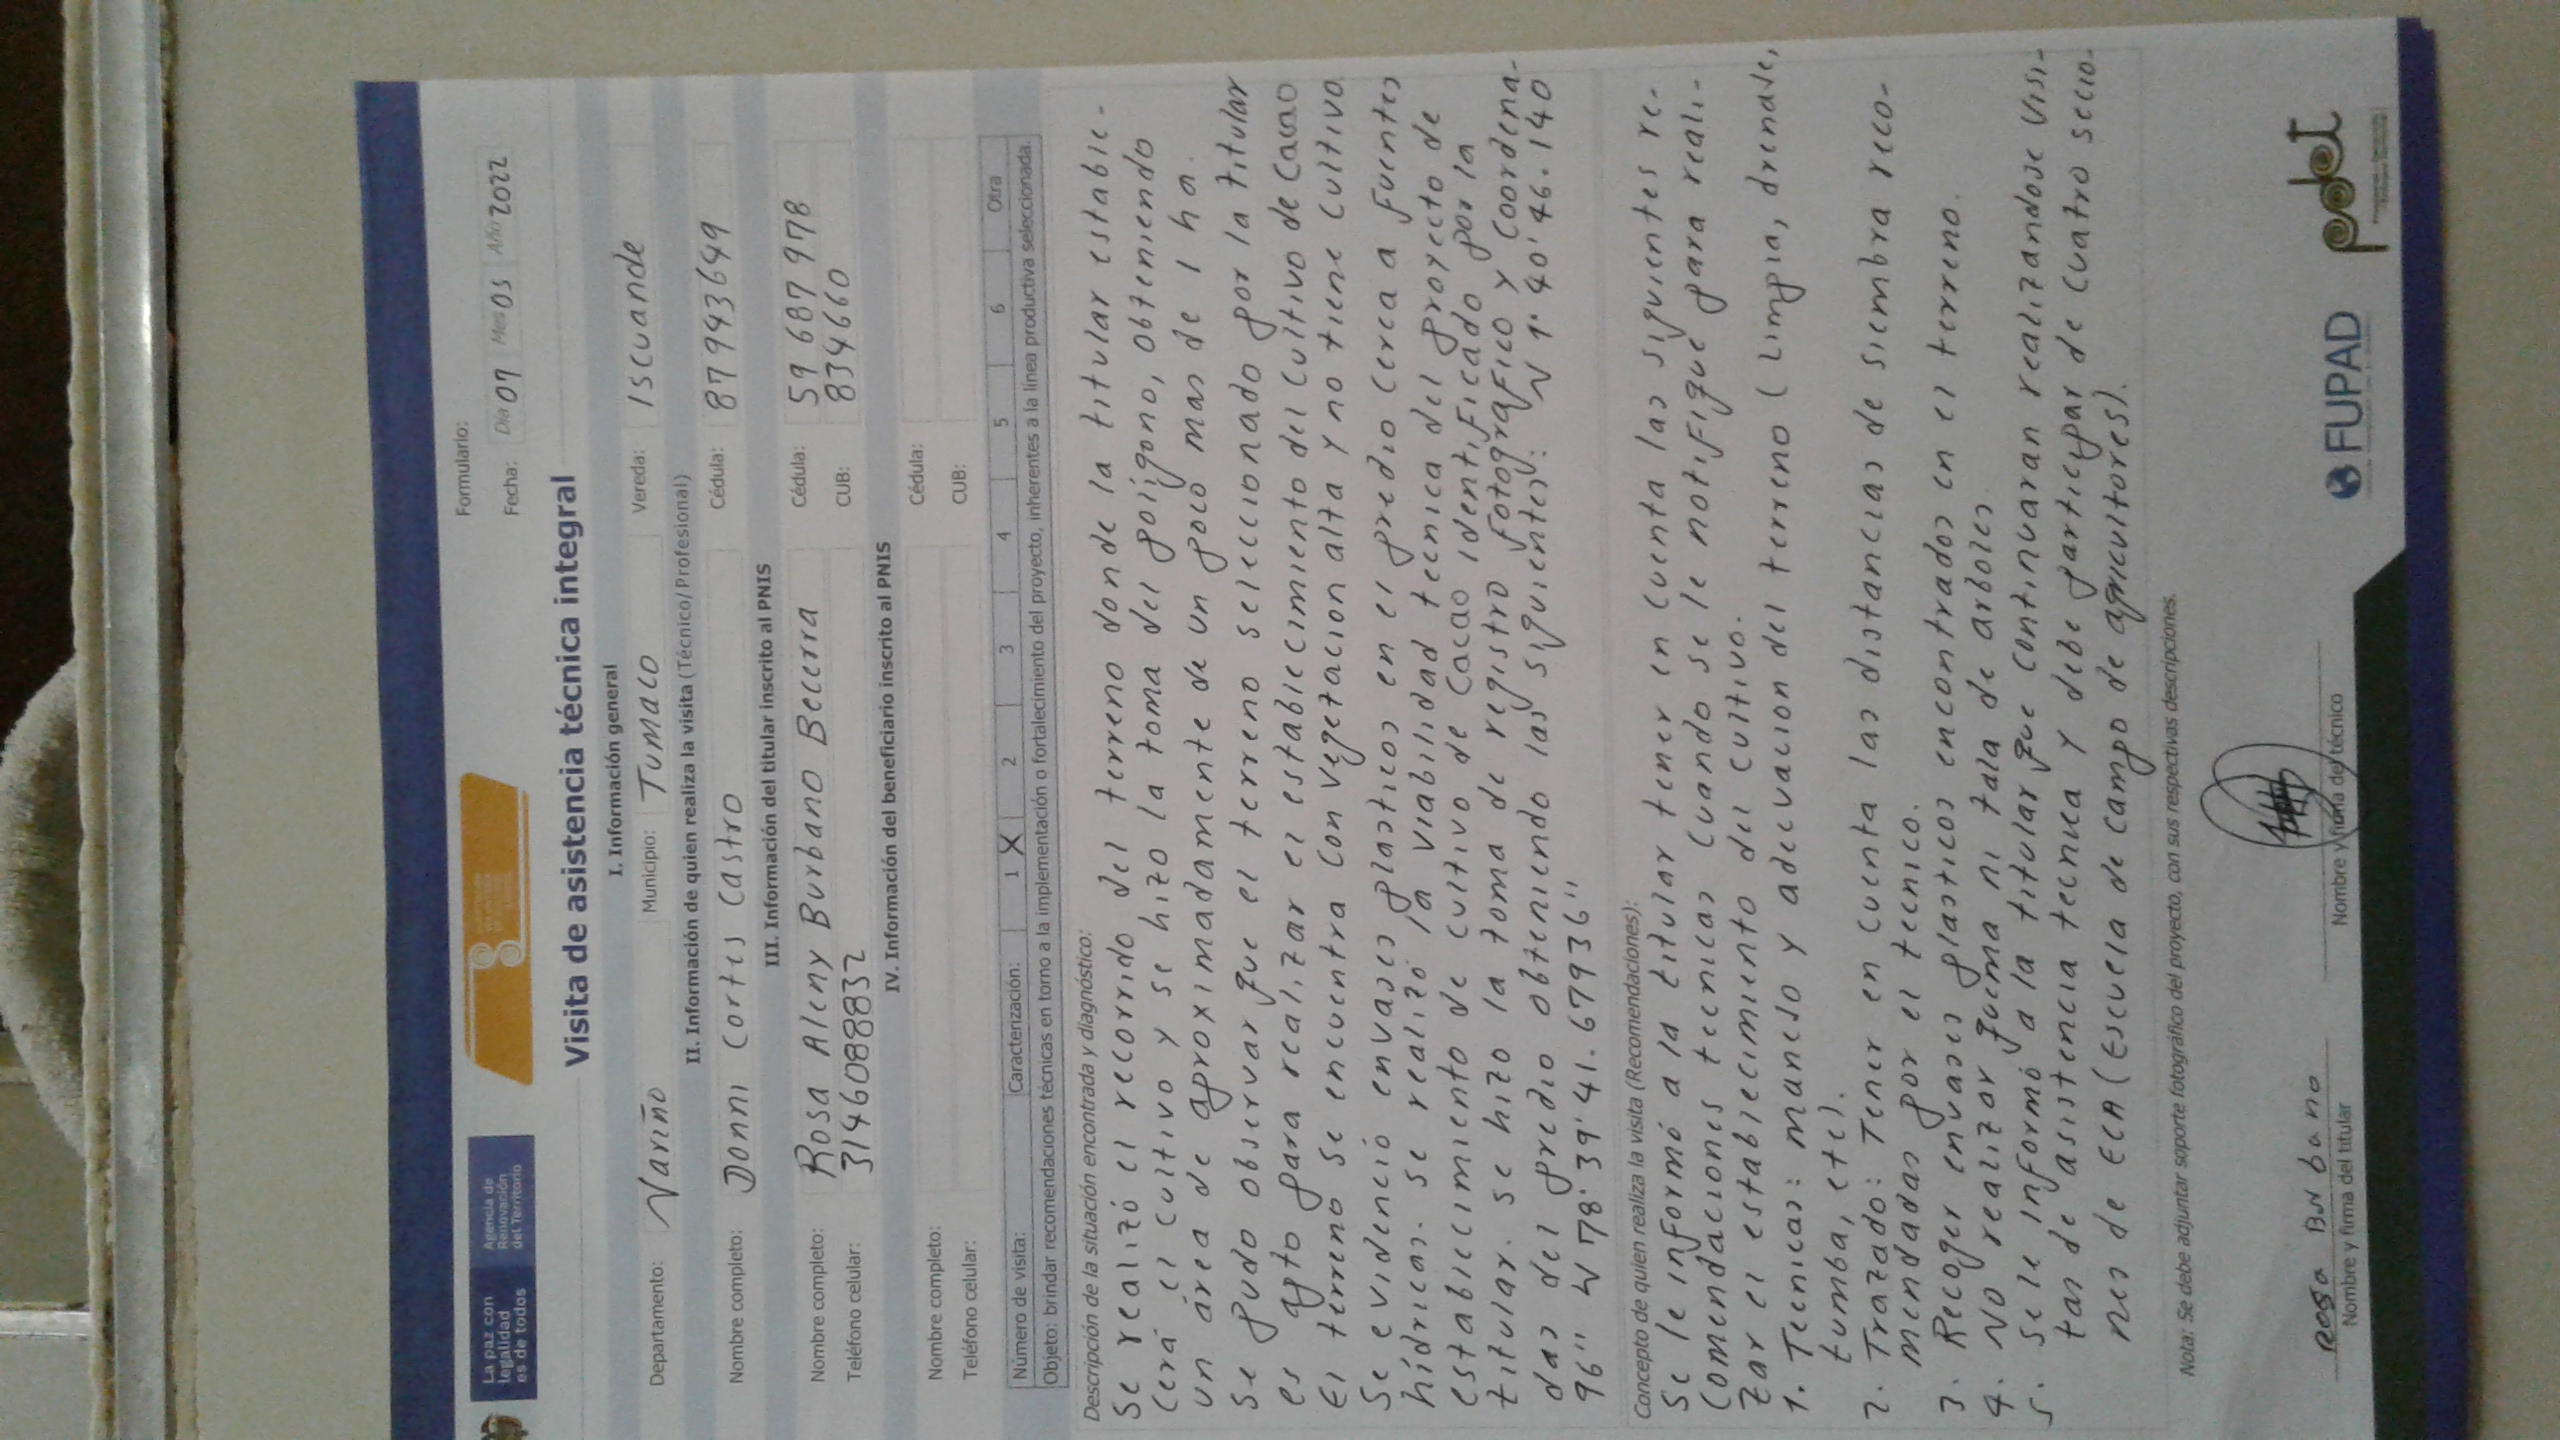 La paz con
legalidad
es de todos
Agencia de
Renovación
del Territorio
Formulario:
Fecha: Día 07 Mes 05 Año 2022
Visita de asistencia técnica integral
I. Información general
Departamento: Nariño Municipio: Tumaco Vereda: Iscuande
II. Información de quien realiza la visita (Técnico/Profesional)
Nombre completo: Donni Cortes Castro Cédula: 87943649
III. Información del titular inscrito al PNIS
Nombre completo: Rosa Aleny Burbano Becerra Cédula: 59 687 978
Teléfono celular: 3146088832 CUB: 834660
IV. Información del beneficiario inscrito al PNIS
Nombre completo: Cédula:
Teléfono celular: CUB:
Número de visita: Caracterización: 1 X 2 3 4 5 6 Otra
Objeto: brindar recomendaciones técnicas en torno a la implementación o fortalecimiento del proyecto, inherentes a la línea productiva seleccionada.
Descripción de la situación encontrada y diagnóstico:
Se realizó el recorrido del terreno donde la titular estable-
cerá el cultivo y se hizo la toma del poligono, obteniendo
un área de aproximadamente de un poco mas de 1 ha.
Se pudo observar que el terreno seleccionado por la titular
es apto para realizar el establecimiento del cultivo de Cacao
El terreno se encuentra con vegetacion alta y no tiene cultivo.
Se evidenció envases plasticos en el predio cerca a fuentes
hídricas. se realizó la viabilidad tecnica del proyecto de
establecimiento de cultivo de Cacao identificado por la
titular. se hizo la toma de registro fotografico y coordena-
das del predio obteniendo las siguientes: N 1° 40' 46.140
96" W 78° 39' 41.67936"
Concepto de quien realiza la visita (Recomendaciones):
Se le informó a la titular tener en cuenta las siguientes re-
comendaciones tecnicas cuando se le notifique para reali-
zar el establecimiento del cultivo.
1. Tecnicas: manejo y adecuacion del terreno (Limpia, drenaje,
tumba, etc).
2. Trazado: Tener en cuenta las distancias de siembra reco-
mendadas por el tecnico.
3. Recoger envases plasticos encontrados en el terreno.
4. No realizar quema ni tala de arboles.
5. se le informó a la titular que continuaran realizandose visi-
tas de asistencia tecnica y debe participar de cuatro seccio-
nes de ECA (Escuela de campo de agricultores).
Nota: Se debe adjuntar soporte fotográfico del proyecto, con sus respectivas descripciones.
Nombre y firma del titular
Nombre y firma del técnico
FUPAD
pdet